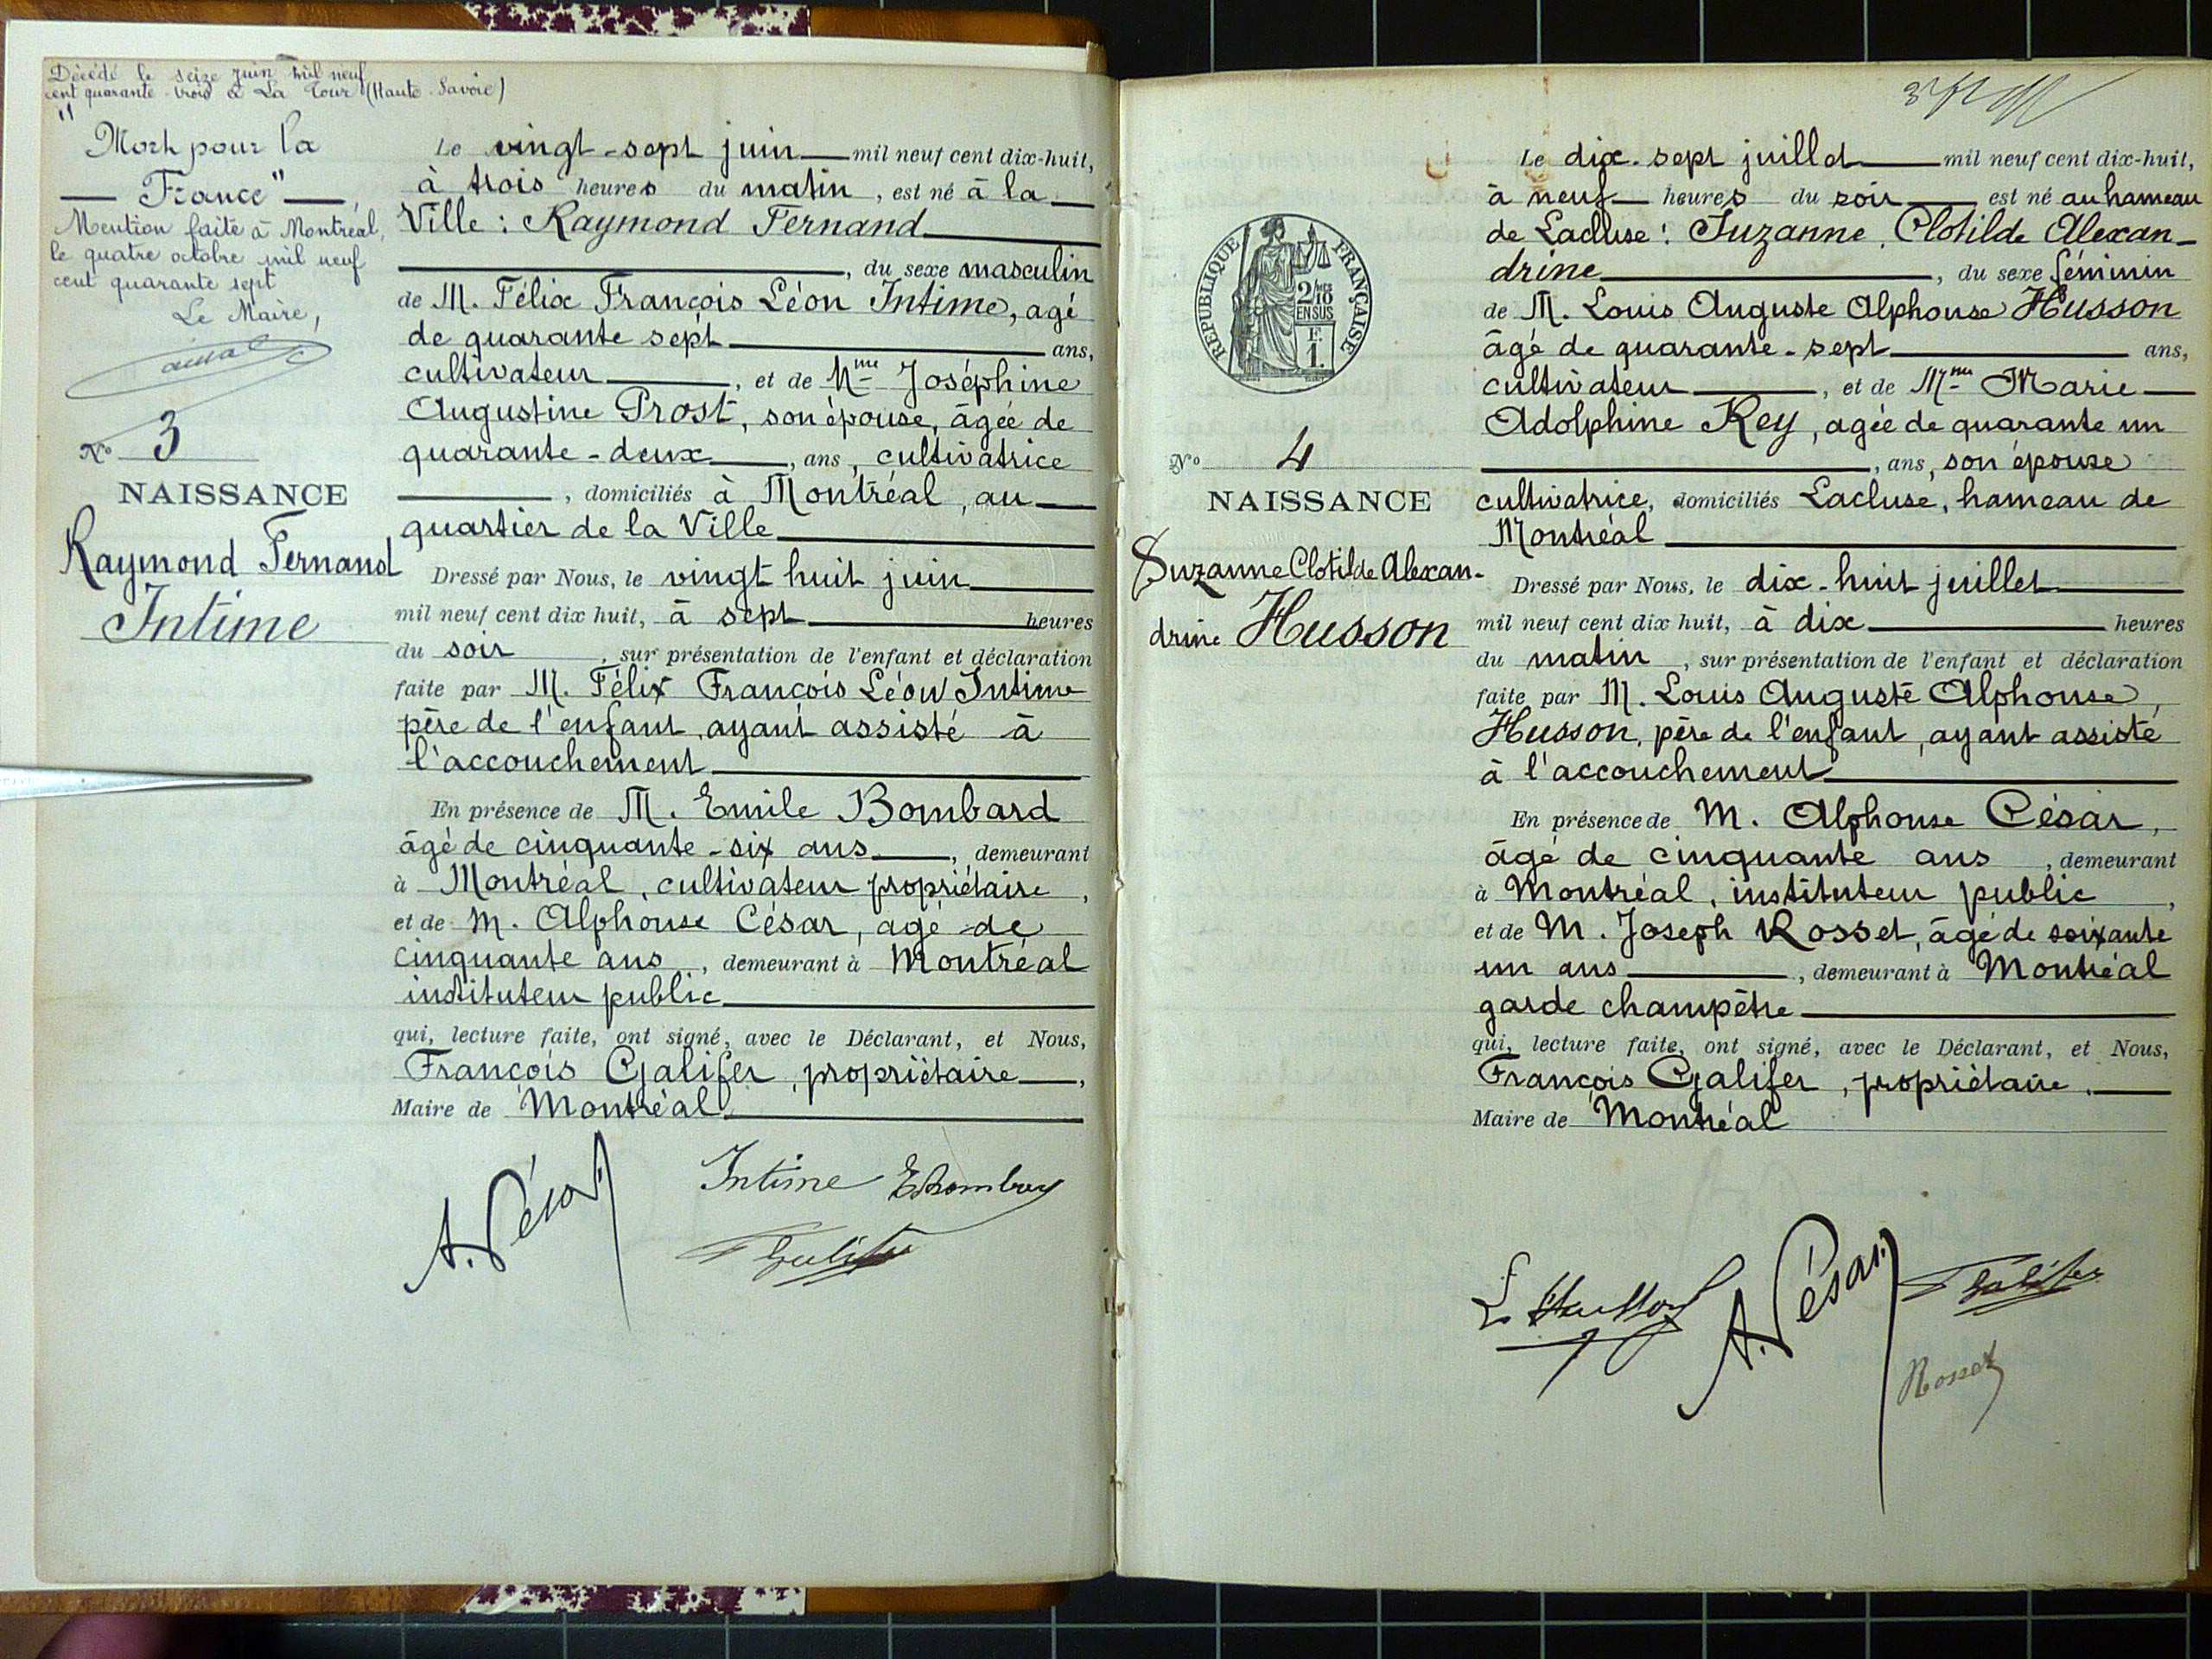 Décédé le seize juin mil neuf
cent quarante-trois à La Tour (Haute-Savoie)
"Mort pour la
— France" —,
Mention faite à Montréal,
le quatre octobre mil neuf
cent quarante sept
Le Maire,
N° 3
NAISSANCE
Raymond Fernand
Intime
Le vingt-sept juin mil neuf cent dix-huit,
à trois heures du matin, est né à la
Ville : Raymond Fernand
, du sexe masculin
de M. Félix François Léon Intime, agé
de quarante sept ans,
cultivateur, et de Mme Joséphine
Augustine Prost, son épouse, âgée de
quarante-deux, ans, cultivatrice
, domiciliés à Montréal, au
quartier de la Ville
Dressé par Nous, le vingt huit juin
mil neuf cent dix huit, à sept heures
du soir, sur présentation de l'enfant et déclaration
faite par M. Félix François Léon Intime
père de l'enfant, ayant assisté à
l'accouchement
En présence de M. Emile Bombard
âgé de cinquante-six ans, demeurant
à Montréal, cultivateur propriétaire,
et de M. Alphonse César, agé de
cinquante ans, demeurant à Montréal
instituteur public
qui, lecture faite, ont signé, avec le Déclarant, et Nous,
François Galifer, propriétaire,
Maire de Montréal
A. César Intime EBombard
F Galifer
RÉPUBLIQUE FRANÇAISE
2/10
EN SUS
F.
1.
N° 4
NAISSANCE
Suzanne Clotilde Alexan-
drine Husson
Le dix-sept juillet mil neuf cent dix-huit,
à neuf heures du soir est né au hameau
de Lacluse : Suzanne, Clotilde Alexan-
drine, du sexe féminin
de M. Louis Auguste Alphonse Husson
âgé de quarante-sept ans,
cultivateur, et de Mme Marie
Adolphine Rey, agée de quarante un
, ans, son épouse
cultivatrice, domiciliés Lacluse, hameau de
Montréal
Dressé par Nous, le dix-huit juillet
mil neuf cent dix huit, à dix heures
du matin, sur présentation de l'enfant et déclaration
faite par M. Louis Auguste Alphonse,
Husson, père de l'enfant, ayant assisté
à l'accouchement
En présence de M. Alphonse César,
âgé de cinquante ans, demeurant
à Montréal, instituteur public,
et de M. Joseph Rosset, âgé de soixante
un ans, demeurant à Montréal
garde champêtre
qui, lecture faite, ont signé, avec le Déclarant, et Nous,
François Galifer, propriétaire,
Maire de Montréal
L Husson A. César F Galifer
Rosset